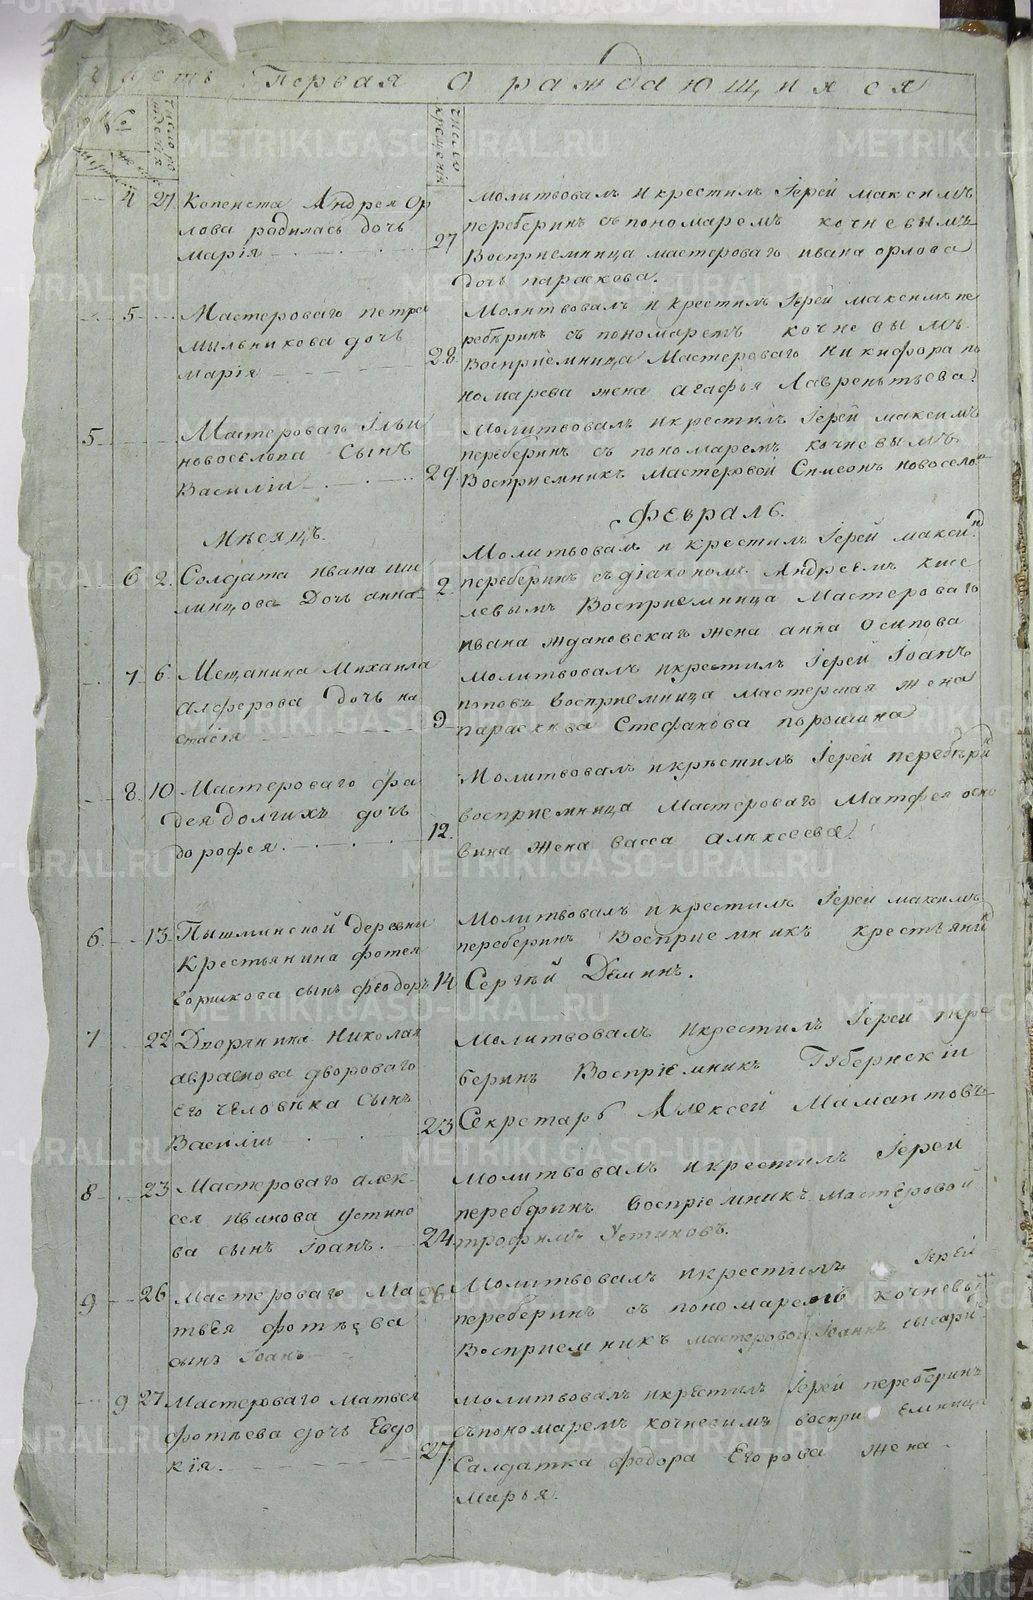 Часть Первая О раждающихся
№
Число рождения
Число крещения
4 27 Копеиста Андрея Ор
лова родилась дочь
Марiя
27
Молитвовалъ и крестилъ Iерей Максимъ
переберинъ съ пономаремъ кочневымъ
Восприемница мастероваго ивана орлова
дочь параскева.
5 Мастероваго петра
мыльникова дочь
марiя
28
Молитвовалъ и крестилъ Iерей максимъ пе
реберинъ съ пономаремъ кочневымъ
Восприемница Мастероваго Никифора по
номарева жена агафья Лаврентьева.
5 Мастероваго Ильи
новоселова Сынъ
Василiи
29
Молитвовалъ и крестилъ Iерей максимъ
переберинъ съ пономаремъ кочневымъ
Восприемникъ Мастеровой Симеонъ новосело
Мѣсяцъ. Февраль.
6 2 Солдата ивана
Дочь анна
2
Молитвовалъ и крестилъ Iерей макси
переберинъ съ дiакономъ Андреемъ кисе
левымъ Восприемница Мастероваго
ивана ждановскаго жена анна Осипова
7 6 Мещанина Михаила
алферова дочь на
стасiя
9
Молитвовалъ и крестилъ Iерей Iоаннъ
поповъ восприемница мастерская жена
параскева Стефанова порошина
8 10 Мастероваго фа
дея долгихъ дочь
дорофея.
12.
Молитвовалъ и крѣстилъ Iерей перебѣри
восприемница Мастероваго Матфея осно
вина жена васса алексеева.
6 13 Пышминской деревни
Крестьянина фотея
сынъ феодоръ
14
Молитвовалъ и крестилъ Iерей максимъ
переберинъ Восприемникъ крестьяни
Сергѣй Деминъ.
7 22 Дворянина Николая
двороваго
Его человѣка Сынъ
Василiи
23
Молитвовалъ и крестилъ Iерей пере
беринъ Восприемникъ Губернскiи
Секретарь Алексей Мамантовъ
8 23 Мастероваго алек
сея иванова устино
ва сынъ Iоанъ.
24
Молитвовалъ и крестилъ Iерей
переберинъ восприемникъ Мастеровой
трофимъ Устиновъ.
9 26 Мастероваго Ма
твея фотѣева
сынъ Iоанъ
26
Молитвовалъ и крестилъ Iерей
переберинъ съ пономаремъ кочневы
Восприемникъ мастеровой Iоаннъ
9 27 Мастероваго матвея
фотѣева дочь Евдо
кiя.
27
Молитвовалъ и крестилъ Iерей переберинъ
съ пономаремъ кочневимъ восприемница
Салдатка федора Егорова жена
Марья.
METRIKI.GASO-URAL.RU